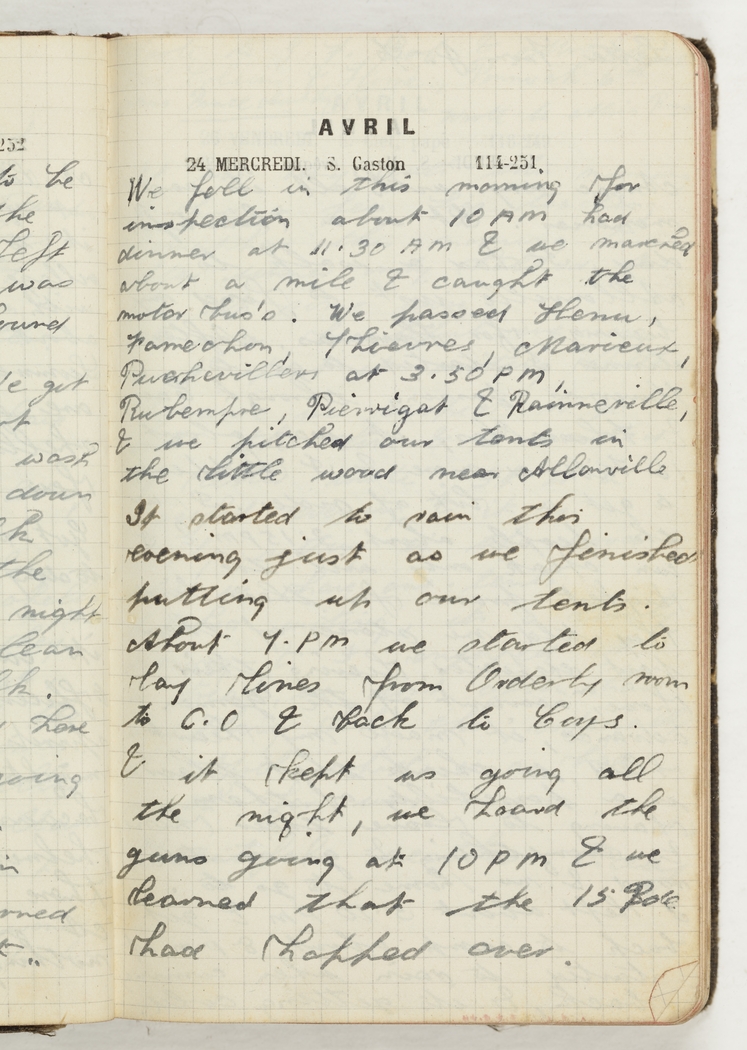 252
to be
the
left
was
ound
We got
wash
down
the
night
lean
have
going
in
rned
AVRIL
24 MERCREDI. S. Gaston 114-251
We fell in this morning for
inspection about 10 AM had
dinner at 11.30 AM & we marched
about a mile & caught the
motor bus's. We passed Henu,
Famechon, Thievres, Marieux,
Puchevillers at 3.50 PM,
Rubempre, Pierrigot & Rainneville,
& we pitched our tents in
the little wood near Allonville
It started to rain this
evening just as we finished
putting up our tents.
About 7. PM we started to
lay lines from Orderly room
to C.O & back to Coys.
& it kept us going all
the night, we heard the
guns going at 10 PM & we
learned that the 15 Bde
had hopped over.